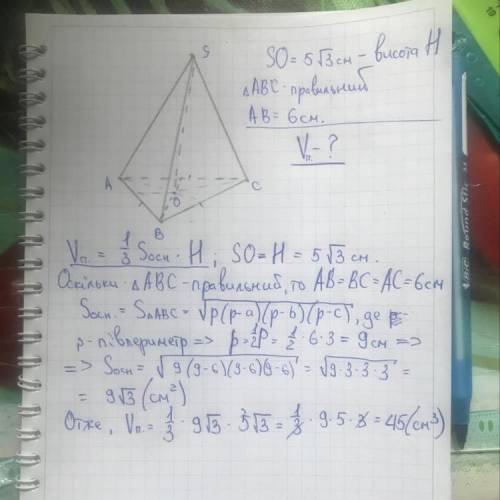 S
SO = 5√3 см – висота H
△ABC - правильний
AB = 6 см.
Vп. – ?
A
O
C
B
Vп. = 1/3 Sосн. · H ; SO = H = 5√3 см.
Оскільки △ABC - правильний, то AB = BC = AC = 6 см
Sосн. = S△ABC = √p(p-a)(p-b)(p-c), де
p - півпериметр => p = 1/2 P = 1/2 · 6 · 3 = 9 см =>
=> Sосн = √9(9-6)(9-6)(9-6) = √9·3·3·3 =
= 9√3 (см²)
Отже, Vп. = 1/3 · 9√3 · 5√3 = 1/3 · 9 · 5 · 3 = 45 (см³)